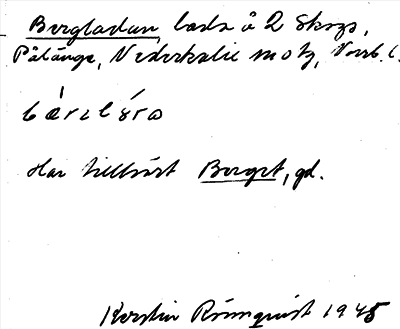 Bergladan, lada å 2 Skogs,
Pålänge, Nederkalix motz, Norrb. l.
Har tillhört Berget, gd.
Kerstin Rönnquist 1945